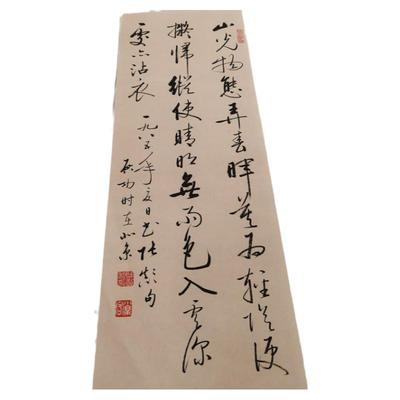 山光物態弄春暉莫為輕陰便
擬歸縱使晴明無雨色入雲深
處亦沾衣 一九八五年夏日書張顛句
啟功時在北京